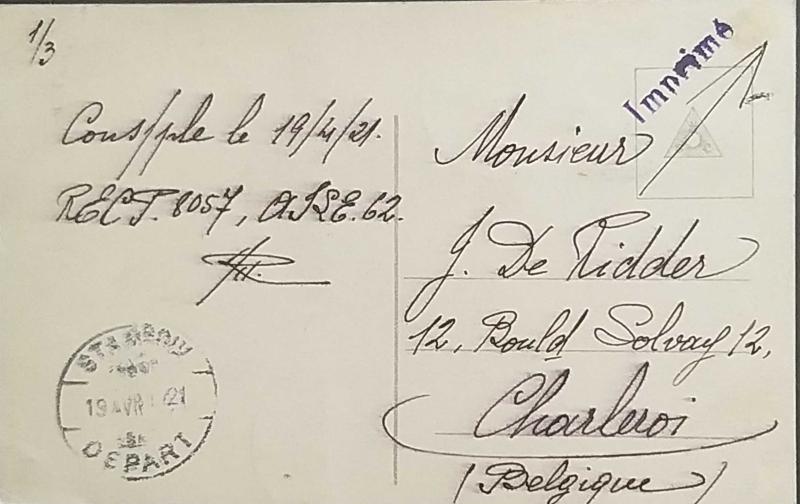 1/3
Imprimé
Cons/ple le 19/4/21.
RECT. 8057, ASE. 62.
Monsieur
J. De Ridder
12, Bould Solvay 12,
Charleroi
(Belgique)
19 AVR 21
DEPART